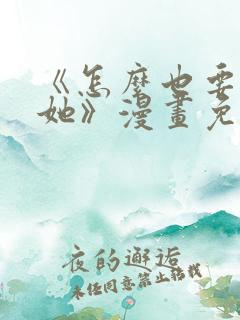 《怎麽也要
她》漫畫免
夜的邂逅
未经同意禁止转载